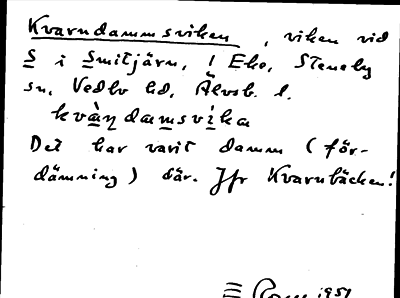 Kvarndammsviken, viken vid
S i Smitjärn, i Eko, Steneby
sn, Vedbo hd, Älvsb. l.
kvàṇdamsvika
Det har varit damm (för-
dämning) där. Jfr Kvarnbäcken!
1951